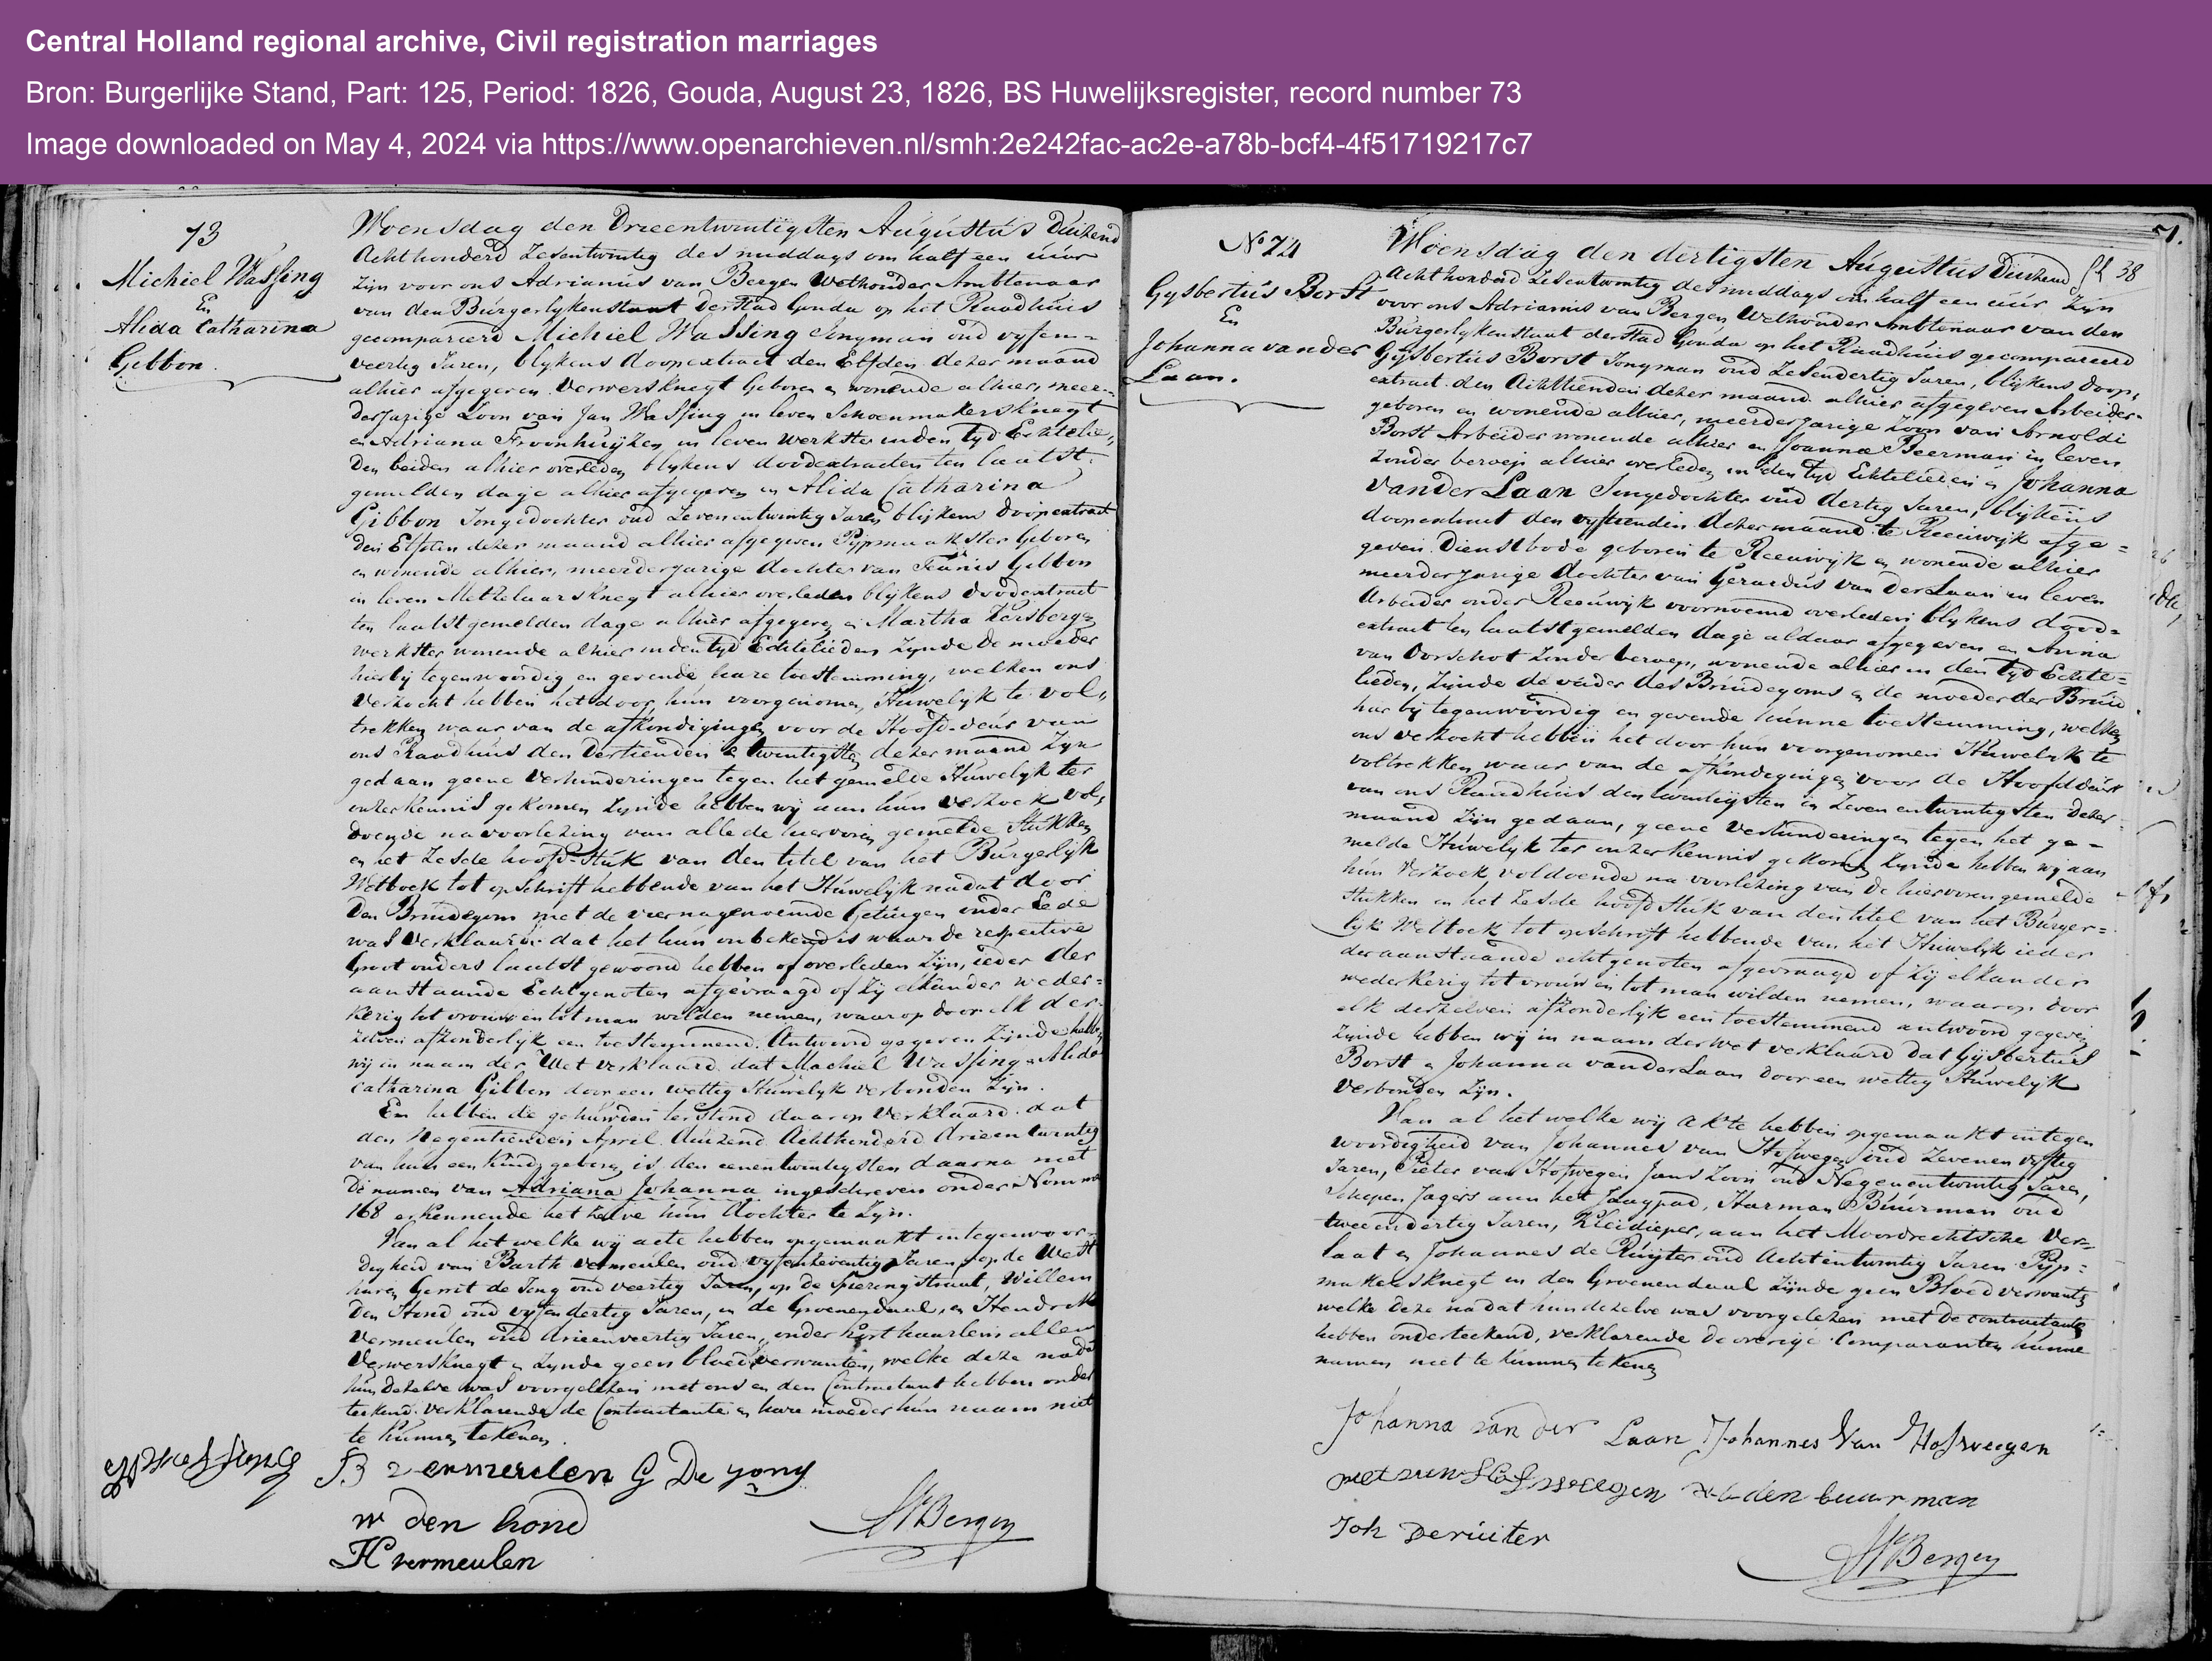 Central Holland regional archive, Civil registration marriages
Bron: Burgerlijke Stand, Part: 125, Period: 1826, Gouda, August 23, 1826, BS Huwelijksregister, record number 73
Image downloaded on May 4, 2024 via https://www.openarchieven.nl/smh:2e242fac-ac2e-a78b-bcf4-4f51719217c7
73
Michiel Wassing
En
Alida Catharina
Gibbon.
Woensdag den Drieentwintigsten Augustus Duizend
Achthonderd Zesentwintig des middags om half een uur
Zijn voor ons Adrianus van Bergen Wethouder Ambtenaar
van den Burgerlykenstaat der stad Gouda op het Raadhuis
gecompareerd Michiel Wassing Jongman oud vyfen=
veertig Jaren, blykens doopextract den Elfden dezer maand
alhier afgegeven Verwersknegt Geboren en wonende alhier, meer=
derjarige Zoon van Jan Wassing in leven Schoenmakersknegt
en Adriana Froonhuijzen in leven werkster in den tyd Echtelie,
den beiden alhier overleden blykens doodextracten ten laatst
gemelden dage alhier afgegeven en Alida Catharina
Gibbon Jongedochter oud Zevenentwintig Jaren blijkens doopextract
den Elfden dezer maand alhier afgegeven Pypmaakster Geboren
en wonende alhier, meerderjarige dochter van Teunis Gibbon
in leven Metzelaarsknegt alhier overleden blykens doodextract
ten laatstgemelden dage alhier afgegeven en Martha Kersbergen
werkster wonende alhier in den tyd Echtelieden Zynde de moeder
hierbij tegenwoordig en gevende hare toestemming, welken ons
verzocht hebben het door hun voorgenomen Huwelyk te vol,
trekken waar van de afkondigingen voor de Hoofd-deur van
ons Raadhuis den dertienden en twintigsten dezer maand Zyn
gedaan geene verhinderingen tegen het gemelde Huwelyk ter
onzer kennis gekomen Zynde hebben wij aan hun verzoek vol,
doende na voorlezing van alle de hiervoren gemelde Stukken
en het Zesde hoofd-stuk van den titel van het Burgerlyk
Wetboek tot opschrift hebbende van het Huwelyk nadat door
den Bruidegom met de vier nagenoemde Getuigen onder Eede
was verklaard dat het hun onbekend is waar de respective
Groot ouders laatst gewoond hebben of overleden Zijn, ieder der
aanstaande Echtgenoten afgevraagd of Zy elkander weder=
kerig tot vrouw en tot man wilden nemen, waarop door elk der=
zelven afzonderlijk een toestemmend Antwoord gegeven Zynde hebben
wij in naam der Wet verklaard dat Machiel Wassing en Alida
Catharina Gibbon door een wettig Huwelyk verbonden Zyn.
En hebben de gehuwden terstond daarop verklaard dat
den Negentienden April duizend Achthonderd drieentwintig
van hun een kind geboren is den eenentwintigsten daarna met
de namen van Adriana Johanna ingeschreven onder Nommer
168 erkennende hetzelve hun dochter te Zyn.
Van al het welke wij acte hebben opgemaakt in tegenwoor=
digheid van Barth vermeulen oud vyfenzeventig Jaren, op de West
haven Gerrit de Jong oud veertig Jaren, op de Spieringstraat, Willem
den Hond oud vyfendertig Jaren, in de Groenendaal, en Hendrik
vermeulen oud drieenveertig Jaren, onder haarlem allen
Verwersknegt en Zynde geen bloedverwanten, welke deze nadat
hun dezelve was voorgelezen met ons en den Contractant hebben onder
teekend verklarende de Contractante en hare moeder hun naam niet
te kunnen tekenen.
B vermeulen G De yong
w den hond
H vermeulen
AvBergen
71.
fl 38
No 74
Gysbertus Borst
En
Johanna vander
Laan.
Woensdag den dertigsten Augustus Duizend
Achthonderd Zesentwintig des middags om half een uur Zyn
voor ons Adrianus van Bergen Wethouder Ambtenaar van den
Burgerlykenstaat der stad Gouda op het Raadhuis gecompareerd
Gijsbertus Borst Jongman oud Zesendertig Jaren, blijkens doop,
extract den Achttienden dezer maand alhier afgegeven Arbeider
geboren en wonende alhier, meerderjarige Zoon van Arnoldi
Borst Arbeider wonende alhier en Joanna Beerman in leven
zonder beroep alhier overleden in den tyd Echtelieden en Johanna
vander Laan Jongedochter oud dertig Jaren, blijkens
doopextract den vyftienden dezer maand te Reeuwijk afge=
geven. Dienstbode geboren te Reeuwijk en wonende alhier
meerderjarige dochter van Gerardus van der Laan in leven
Arbeider onder Reeuwijk voornoemd overleden blykens dood=
extract ten laatstgemelden dage aldaar afgegeven en Anna
van Oorschot Zonder beroep, wonende alhier in den tyd Echte=
lieden, Zijnde de vader des Bruidegoms en de moeder der Bruid
hier by tegenwoordig en gevende hunne toestemming, welken
ons verzocht hebben het door hun voorgenomen Huwelyk te
voltrekken waar van de afkondigingen voor de Hoofddeur
van ons Raadhuis den twintigsten en Zevenentwintigsten dezer
maand Zijn gedaan, geene verhinderingen tegen het ge=
melde Huwelyk ter onzer kennis gekomen Zynde hebben wij aan
hun verzoek voldoende na voorlezing van de hiervorengemelde
stukken en het Zesde hoofdstuk van den titel van het Burger=
lyk Wetboek tot opschrift hebbende van het Huwelyk ieder
der aanstaande echtgenoten afgevraagd of Zij elkander
wederkerig tot vrouw en tot man wilden nemen, waarop door
elk derzelven afzonderlyk een toestemmend antwoord gegeven
Zynde hebben wij in naam der wet verklaard dat Gijsbertus
Borst en Johanna vanderLaan door een wettig Huwelijk
verbonden Zyn.
Van al het welke wij akte hebben opgemaakt in tegen
woordigheid van Johannes van Hofwegen oud Zevenenvyftig
Jaren, Pieter van Hofwegen Jans Zoon oud Negenentwintig Jaren,
Schepen Jagers aan het Jaagpad, Harman Buurman oud
tweeendertig Jaren, Kleidieper, aan het Moordrechtsche Ver=
laat en Johannes de Ruyter oud Achtentwintig Jaren Pyp=
makersknegt in den Groenendaal Zijnde geen Bloedverwanten
welke deze nadat hun dezelve was voorgelezen met de contractante
hebben onderteekend, verklarende de overige Comparanten hunne
namen niet te kunnen tekenen
Johanna van der Laan Johannes Van Hofweegen
den buurman
Joh Deruiter
AvBergen